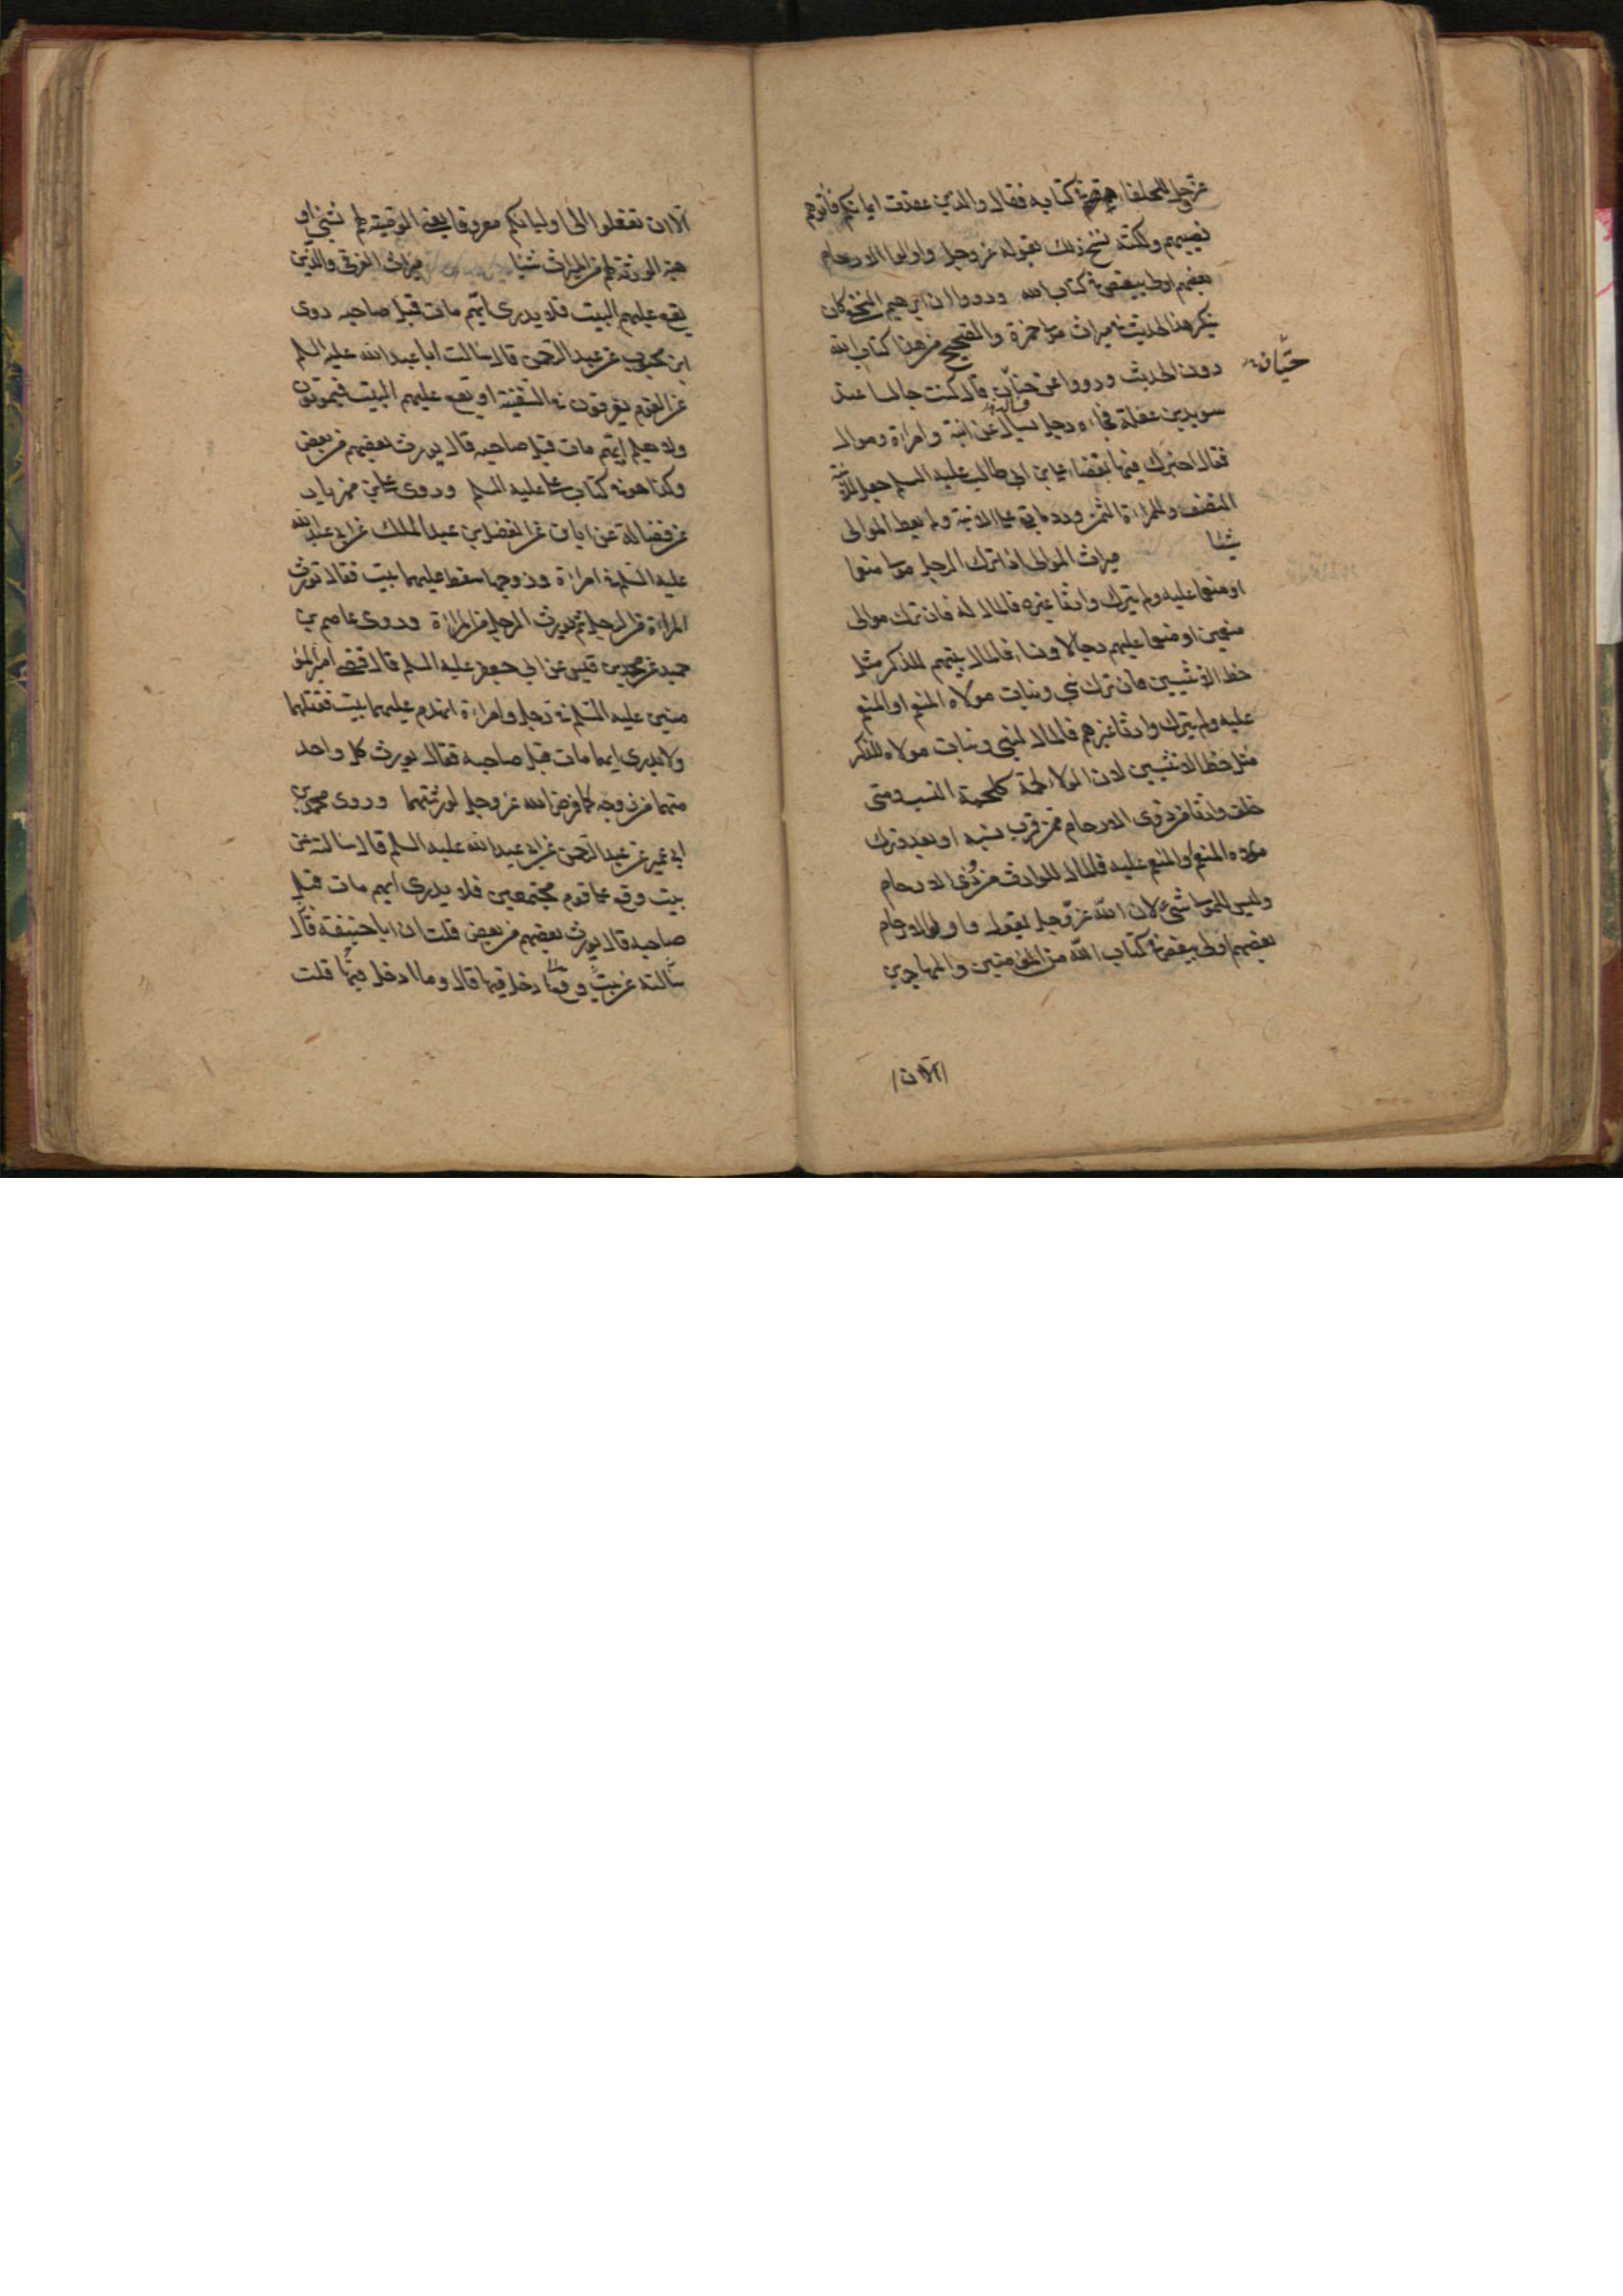 عزّ وجلّ للحلفاء في كتابه فقال والذين عقدت ايمانكم فأتوهم
نصيبهم ولكنه نسخ ذلك بقوله عز وجل واولوا الارحام
بعضهم اولى ببعض في كتاب الله ورووا ان ابرهيم النخعي كان
ينكر هذا الحديث في ميراث مولى حمزة والصحيح من هذا كتاب الله
دون الحديث ورووا عن حنّان قال كنت جالسا عند
حيّان
سويد بن عفلة فجاءه رجل فسأله عن ابنة وامراة وموال
فقال اخبرك فيها بقضاء علي بن ابي طالب عليه السلم جعل للابنة
النصف وللمراة الثمن ورد ما بقي على الابنة ولم يعط الموالى
شيئا ميراث الموالى اذا ترك الرجل مولى منعما
او منعما عليه ولم يترك وارثا غيره فالمال له فان ترك موالى
منعمين او منعما عليهم رجالا ونساء فالمال بينهم للذكر مثل
حظ الانثيين فان ترك بني وبنات مولاه المنعم او المنعم
عليه ولم يترك وارثا غيرهم فالمال لبني وبنات مولاه للذكر
مثل حظ الانثيين لان الولاء لحمة كلحمة النسب ومتى
خلف وارثا من ذوى الارحام ممن قرب نسبه او بعد وترك
مولاه المنعم او المنعم عليه فالمال للوارث من ذوى الارحام
وليس للمولى شئ لان الله عزّ وجل يقول واولوا الارحام
بعضهم اولى ببعض في كتاب الله من المؤمنين والمهاجرين
الّا ان
الّا ان تفعلوا الى اوليائكم معروفا يعنى الوصية لهم بشئ او
هبة الورثة لهم من الميراث شيئا ميراث الغرقى والذين
يقع عليهم البيت فلا يدرى ايّهم مات قبل صاحبه روى
ابن محبوب عن عبد الرحمن قال سالت ابا عبد الله عليه السلم
عن القوم يغرقون في السفينة او يقع عليهم البيت فيموتون
ولا يعلم ايّهم مات قبل صاحبه قال يورث بعضهم من بعض
وكذا هو في كتاب علي عليه السلم وروى علي بن مهزيار
عن فضالة عن ابان عن الفضل بن عبد الملك عن ابي عبد الله
عليه السّلم في امراة وزوجها سقط عليهما بيت فقال تورث
المراة من الرجل ثم يورث الرجل من المراة وروى عاصم بن
حميد عن محمد بن قيس عن ابي جعفر عليه السلم قال قضى امير المؤ
منين عليه السّلم في رجل وامراة انهدم عليهما بيت فقتلهما
ولا يدرى ايهما مات قبل صاحبه فقال يورث كل واحد
منهما من زوجه كما فرض الله عز وجل لورثتهما وروى محمد بن
ابي عمير عن عبد الرحمن عن ابي عبد الله عليه السلم قال سالته عن
بيت وقع على قوم مجتمعين فلا يدرى ايهم مات قبل
صاحبه قال يورث بعضهم من بعض قلت ان ابا حنيفة قال
سالته عن بيت وقع ادخل فيها قال وما ادخل فيها قلت